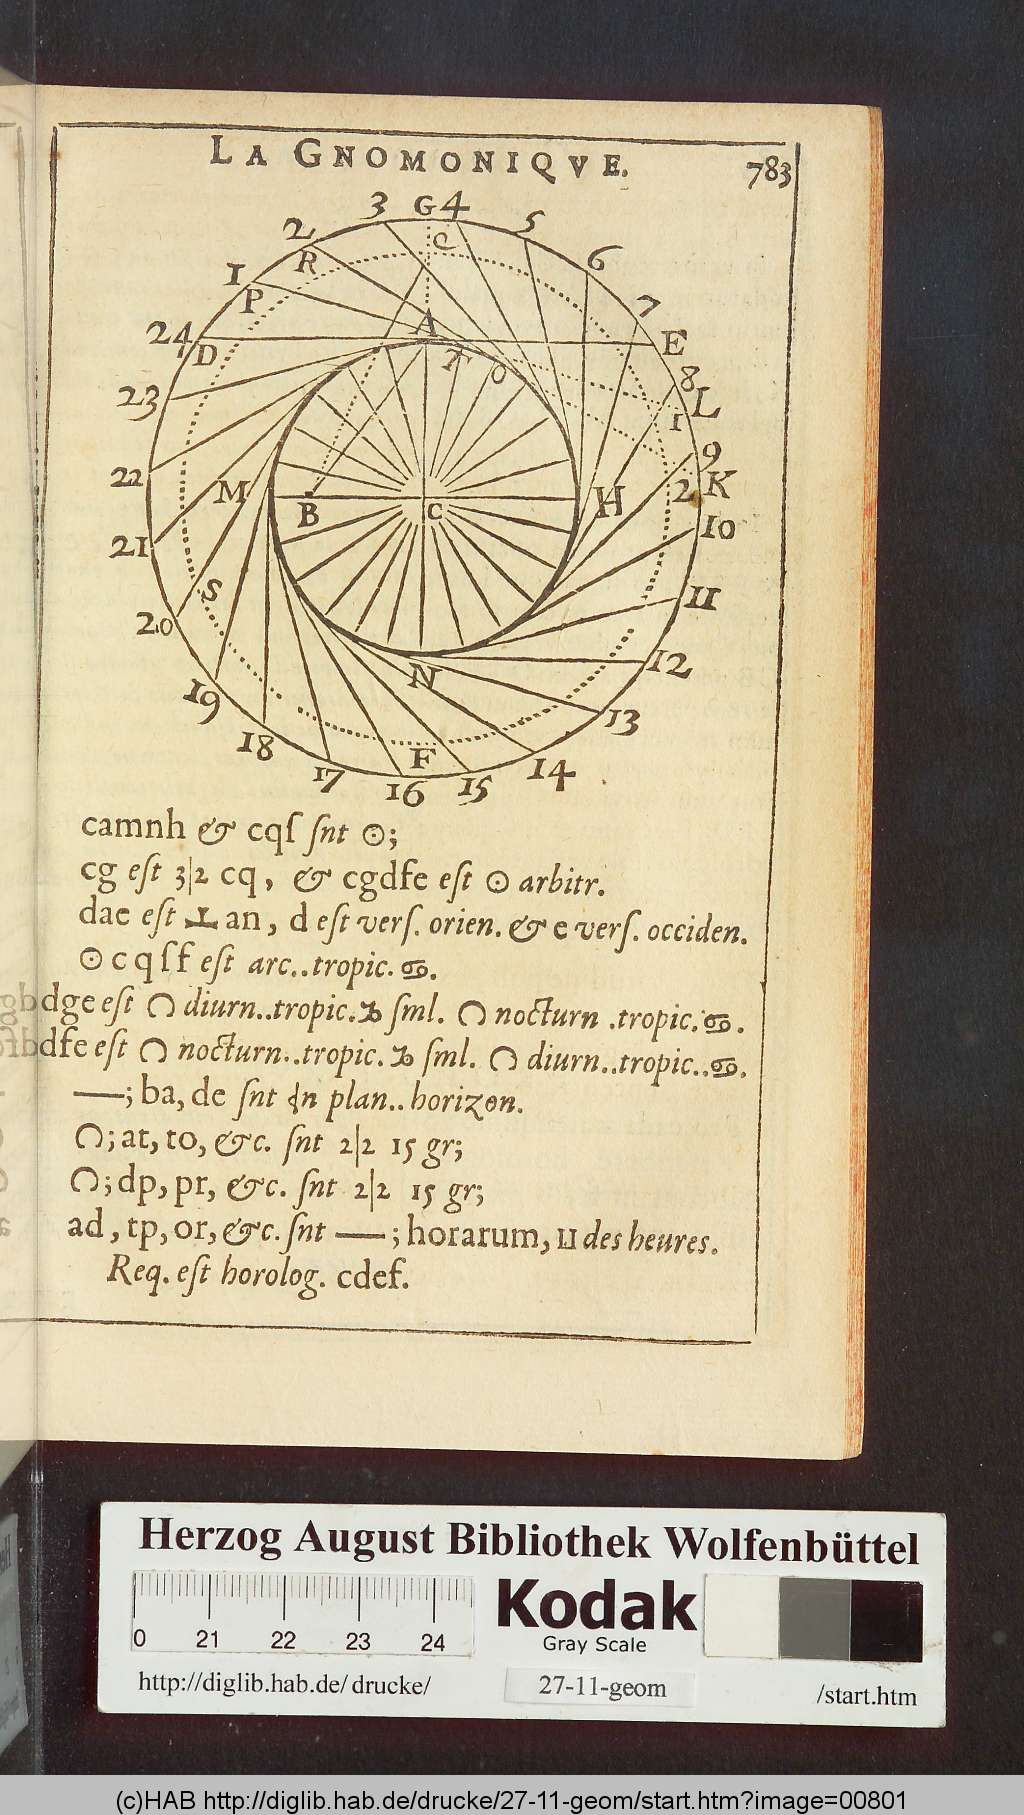 LA GNOMONIQVE.
783
3 G 4
2 5
R C 6
1 P 7
24 D A E
T O 8 L
23 1
9
22 M H 2 K
B C 10
21
S 11
20
N 12
19 13
18 F 14
17 16 15
camnh & cqſ ſnt ⊙;
cg eſt 3|2 cq, & cgdfe eſt ⊙ arbitr.
dae eſt ⊥ an, d eſt verſ. orien. & e verſ. occiden.
⊙ c q ſ f eſt arc..tropic. ♋.
bdge eſt ◠ diurn..tropic.♑ ſml. ◠ nocturn .tropic.♋.
bdfe eſt ◠ nocturn..tropic.♑ ſml. ◠ diurn..tropic..♋.
—; ba, de ſnt plan.. horizon.
◠; at, to, &c. ſnt 2|2 15 gr;
◠; dp, pr, &c. ſnt 2|2 15 gr;
ad, tp, or, &c. ſnt —; horarum, des heures.
Req. eſt horolog. cdef.
Herzog August Bibliothek Wolfenbüttel
0 21 22 23 24
Kodak
Gray Scale
http://diglib.hab.de/drucke/ 27-11-geom /start.htm
(c)HAB http://diglib.hab.de/drucke/27-11-geom/start.htm?image=00801